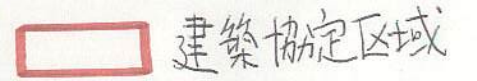 建築協定区域